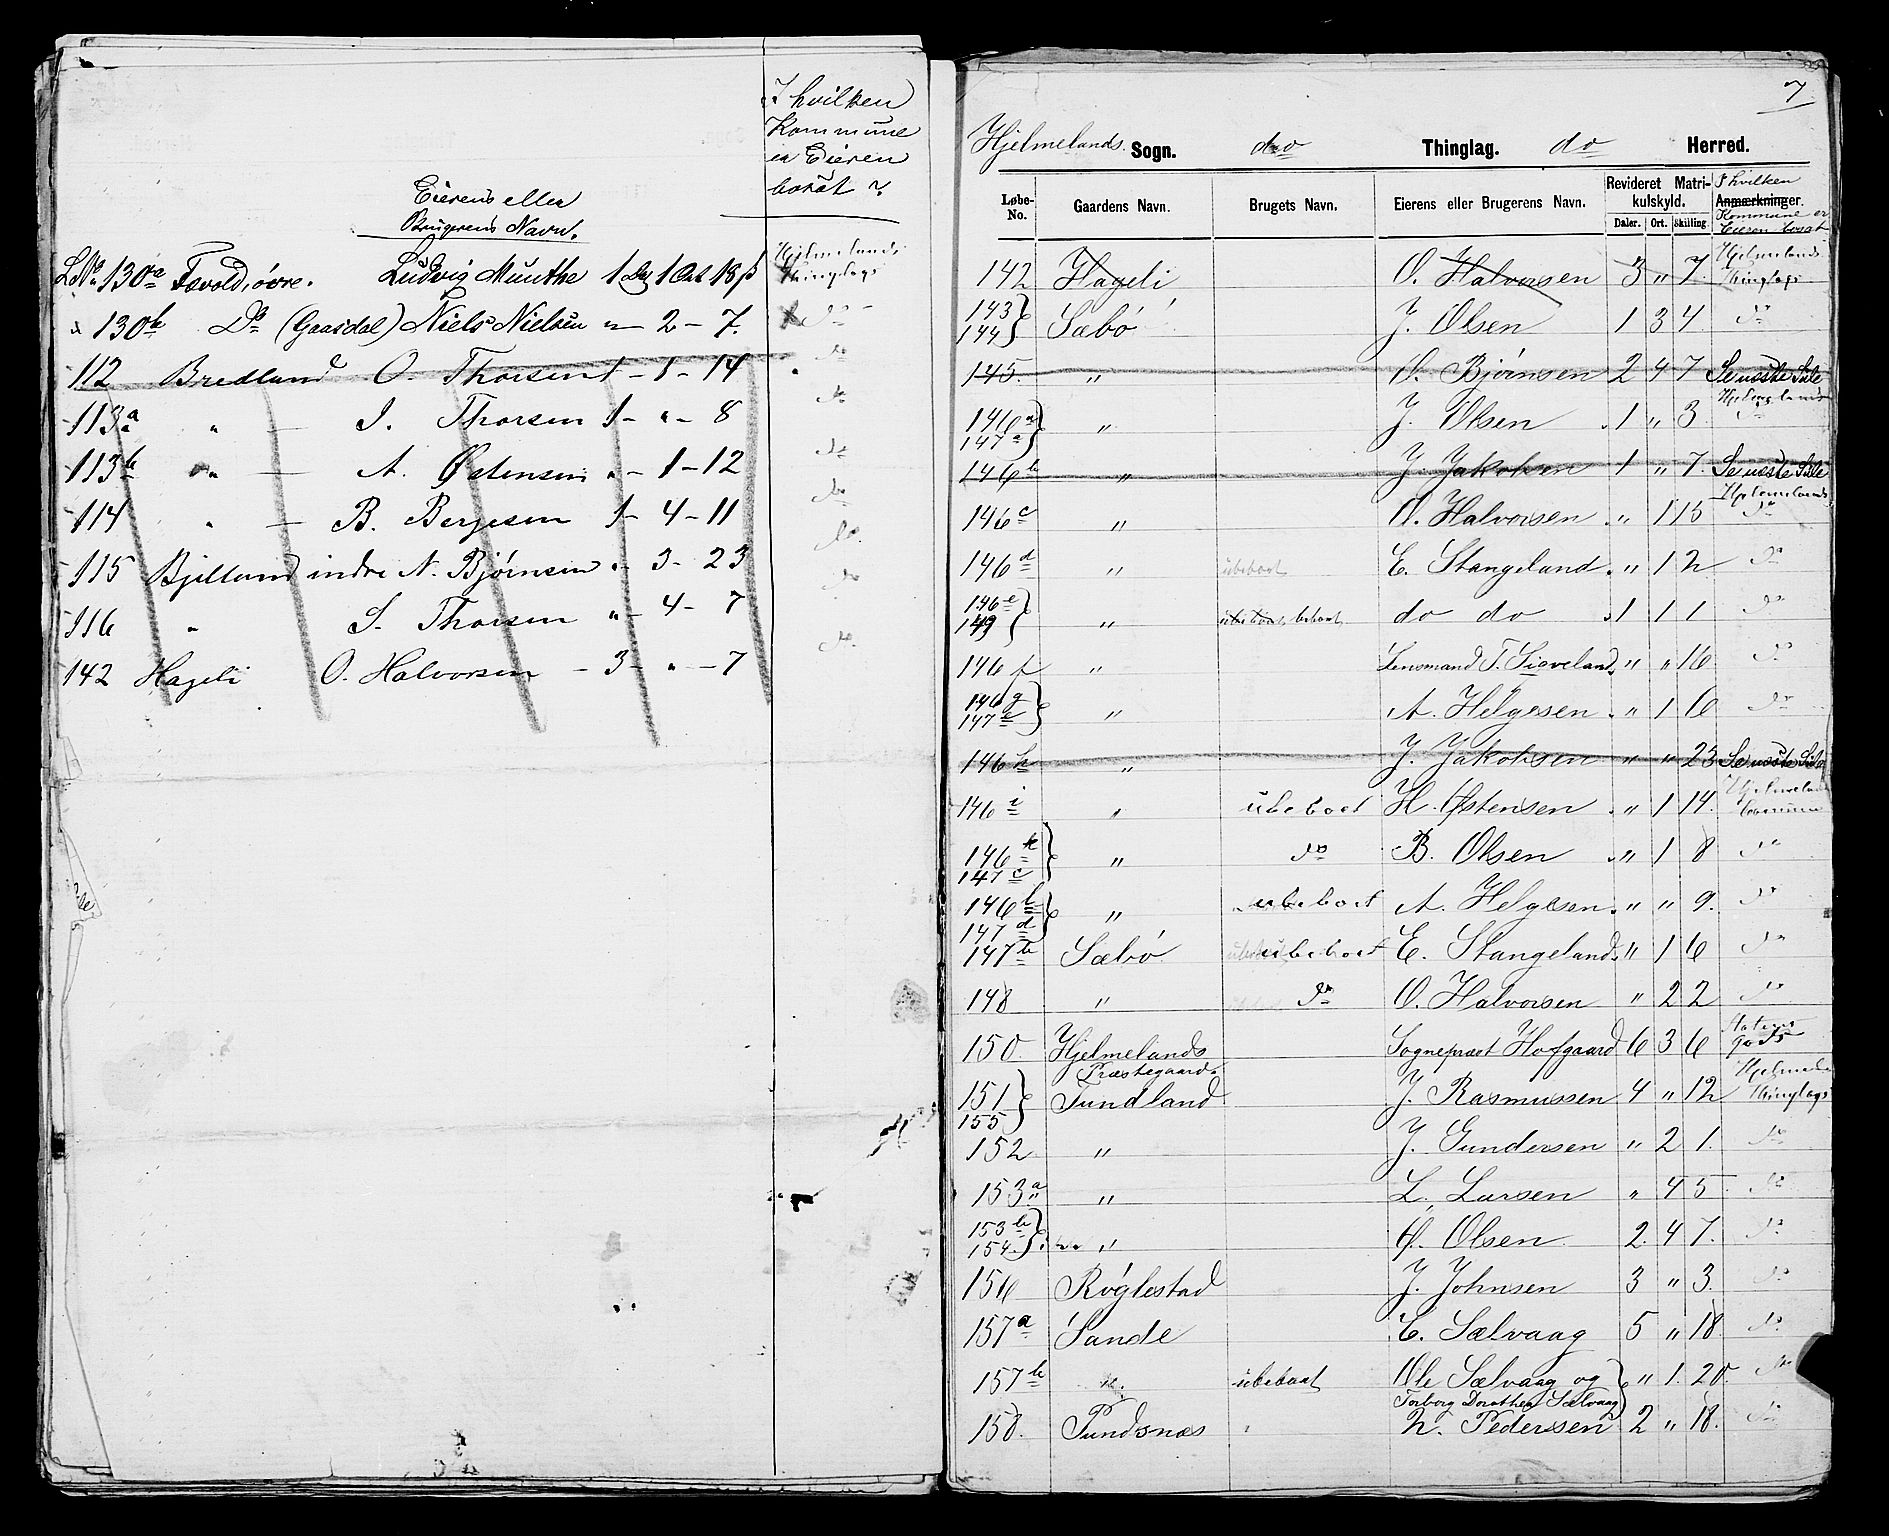 I hvilken
Kommune
er Eieren
bosat?
Eierens eller
Brugerens Navn.
L.No. 130a Fævold, øvre. Ludvig Munthe 1 Dlr 1 Ort 18 β Hjelmelands Thinglags
130b Do (Gaasdal) Niels Nielsen " - 2 - 7. Do
112 Bredland O. Thorsen 1 - 1 - 14 Do
113a " - I. Thorsen 1 - " - 8 Do
113b " - A. Østensen " - 1 - 12 Do
114 " - B. Bergesen 1 - 4 - 11 Do
115 Bjelland indre N. Bjørnsen " - 3 - 23 Do
116 " S. Thorsen " - 4 - 7 Do
142 Hageli O. Halvorsen - 3 - " - 7 Do
7
Hjelmelands Sogn. do Thinglag. do Herred.
Løbe-No. Gaardens Navn. Brugets Navn. Eierens eller Brugerens Navn. Revideret Matrikulskyld. Daler. Ort. Skilling. Anmærkninger. I hvilken Kommune er Eieren bosat
142 Hageli O. Halvorsen 3 " 7. Hjelmelands Thinglags
143 144 } Sæbø J. Olsen 1 3 4 Do
145. " O. Bjørnsen 2 4 7 Se næste Side
146a 147a } " J. Olsen 1 " 3 Hjelmelands Do
146b " J. Jakobsen 1 " 7 Se næste Side
146c " O. Halvorsen " 1 15 Hjelmelands Do
146d " ubeboet E. Stangeland " 1 2 Do
146e 149 } " ubeboet, beboet do do 1 1 1 Do
146f " Lensmand T. Sieveland " " 16 Do
146g 147e } " A. Helgesen " 1 6 Do
146h " J. Jakobsen " " 23 Se næste Side
146i " ubeboet H. Østensen " 1 14. Hjelmeland Commune
146k 147c } " Do B. Olsen " 1 8 Do
146l 147d } " ubeboet A. Helgesen " " 9. Do
147b Sæbø ubeboet E. Stangeland " 1 6 Do
148 " Do O. Halvorsen " 2 2 Do
150. Hjelmelands Præstegaard. Sognepræst Hofgaard 6 3 6 Statens Gods
151 155 } Tundland J. Rasmussen 4 " 12 Hjelmela Thinglags
152 " J. Gundersen " 2 1. Do
153a " L. Larsen " 4 5 Do
153b 154. } " Ø. Olsen 2 4 7. Do
156 Røglestad J. Johnsen 3 " 3. Do
157a Sande E. Sælvaag 5 " 18. Do
157b " ubeboet Ole Sælvaag og Torborg Dorothea Sælvaag } " 1. 20. Do
158. Pundsnæs N. Pedersen 2 " 18. Do